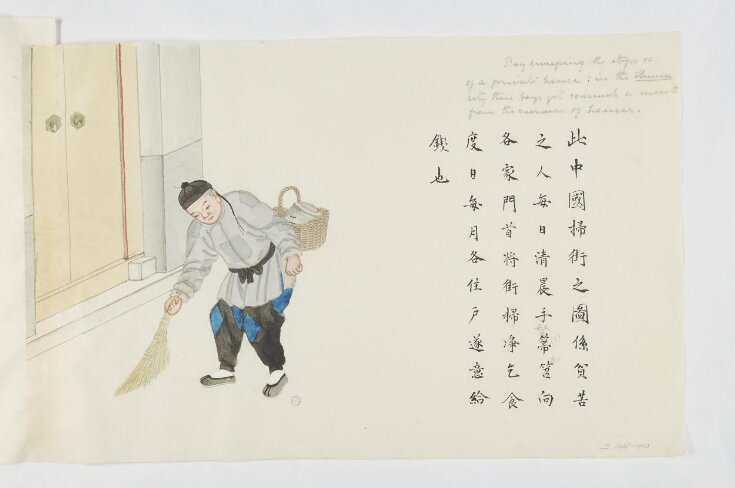 Boy sweeping the steps &c.
of a private house; in the Chinese
city these boys get so much a month
from the owners of houses.
此中國掃街之圖係貧苦
之人每日清晨手箒筥向
各家門首將街掃净乞食
度日每月各住戶遂意給
錢也